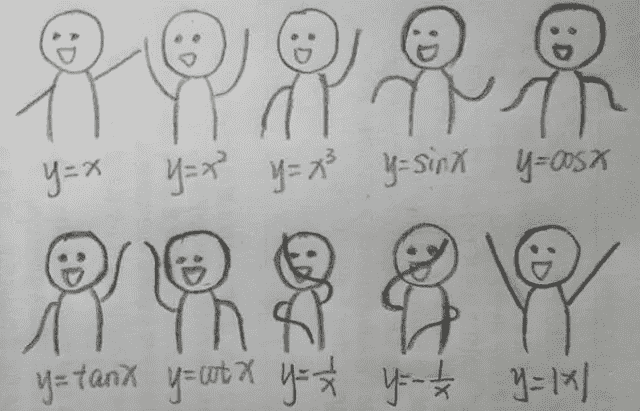 y=x y=x² y=x³ y=sinx y=cosx
y=tanx y=cotx y=1/x y=-1/x y=|x|